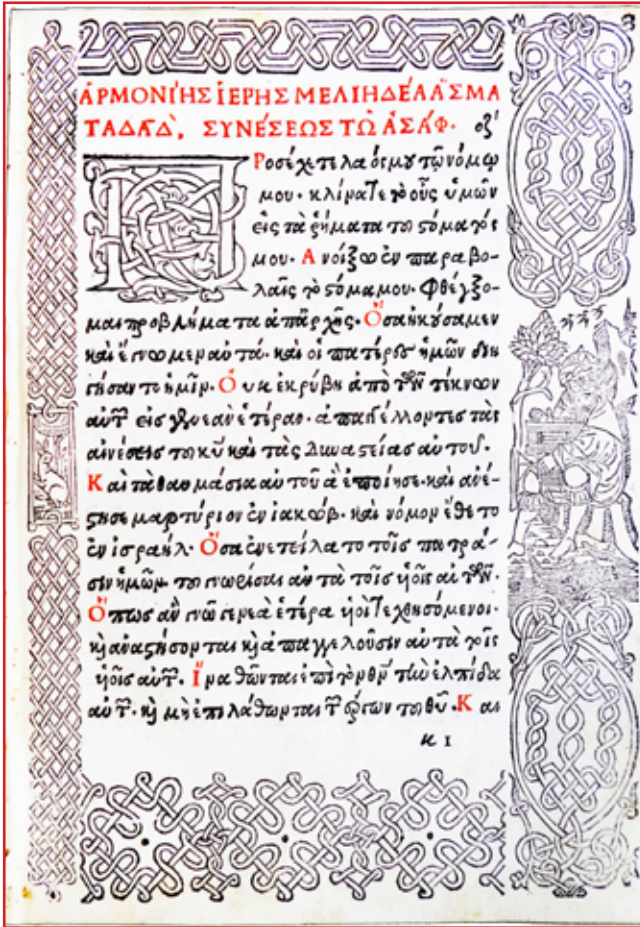 ἉΡΜΟΝΊΗΣ ἹΕΡΗΣ ΜΕΛΙΗΔΈΑ ἌΣΜΑ
ΤΑ ΔΑΔ̀. ΣΥΝΈΣΕΩΣ ΤΩ͂ ἈΣΆΦ. οζ'
ΠΡοσέχετε λαός μου τῶ νόμω
μου· κλίνατε τὸ οὖς ὑμῶν
εἰς τὰ ῥήματα τοῦ στόματός
μου· Ἀνοίξω ἐν παραβο-
λαῖς τὸ στόμα μου· Φθέγξο-
μαι προβλήματα ἀπ' ἀρχῆς· Ὅσα ἠκούσαμεν
καὶ ἔγνωμεν αὐτά· καὶ οἱ πατέρες ἡμῶν διη
γήσαντο ἡμῖν· Οὐκ ἐκρύβη ἀπὸ τῶν τέκνων
αὐτῶν εἰς γενεὰν ἑτέραν· ἀπαγγέλλοντες τὰς
αἰνέσεις τοῦ κῦ καὶ τὰς δυναστείας αὐτοῦ·
Καὶ τὰ θαυμάσια αὐτοῦ ἃ ἐποίησε· καὶ ἀνέ-
στησε μαρτύριον ἐν ἰακώβ· καὶ νόμον ἔθετο
ἐν ἰσραήλ· Ὅσα ἐνετείλατο τοῖς πατρά-
σιν ἡμῶν τοῦ γνωρίσαι αὐτὰ τοῖς ὑοῖς αὐτῶν·
Ὅπως ἂν γνῶ γενεὰ ἑτέρα ὑοὶ τεχθησόμενοι·
κὶ ἀναστήσονται κὶ ἀπαγγελοῦσιν αὐτὰ τοῖς
ὑοῖς αὐτῶν· Ἵνα θῶνται ἐπὶ τὸν θν̄ τὴν ἐλπίδα
αὐτῶν· κὶ μὴ ἐπιλάθωνται τῶν ἔργων τοῦ θῦ· Και
κ Ι